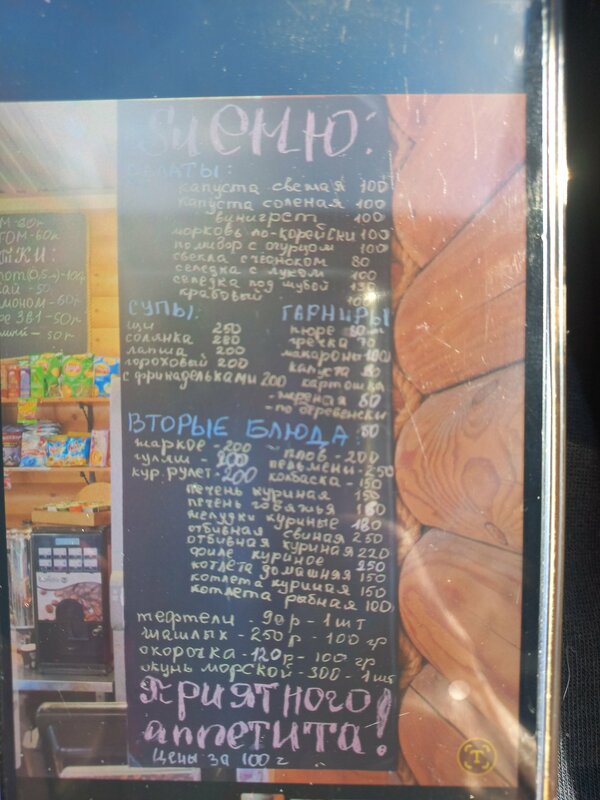 МЕНЮ:
САЛАТЫ:
капуста свежая 100
капуста соленая 100
винигрет 100
морковь по-корейски 100
помидор с огурцом 100
свекла с чесноком 80
селедка с луком 100
селедка под шубой 130
крабовый
СУПЫ:
щи 250
солянка 280
лапша 200
гороховый 200
с фрикадельками 200
ГАРНИРЫ
пюре 80
гречка 70
макароны 100
капуста 80
картошка
-жареная 80
-по деревенски
80
ВТОРЫЕ БЛЮДА
жаркое - 200
гуляш - 200
кур. рулет - 200
плов - 200
пельмени - 250
колбаска - 150
печень куриная 150
печень говяжья 180
желудки куриные 180
отбивная свиная 250
отбивная куриная 220
филе куриное 250
котлета домашняя 150
котлета куриная 150
котлета рыбная 100
тефтели - 90р - 1 шт
шашлык - 250р - 100 гр
окорочка - 120р - 100 гр
окунь морской - 300 - 1 шт
Приятного
аппетита!
Цены за 100 г